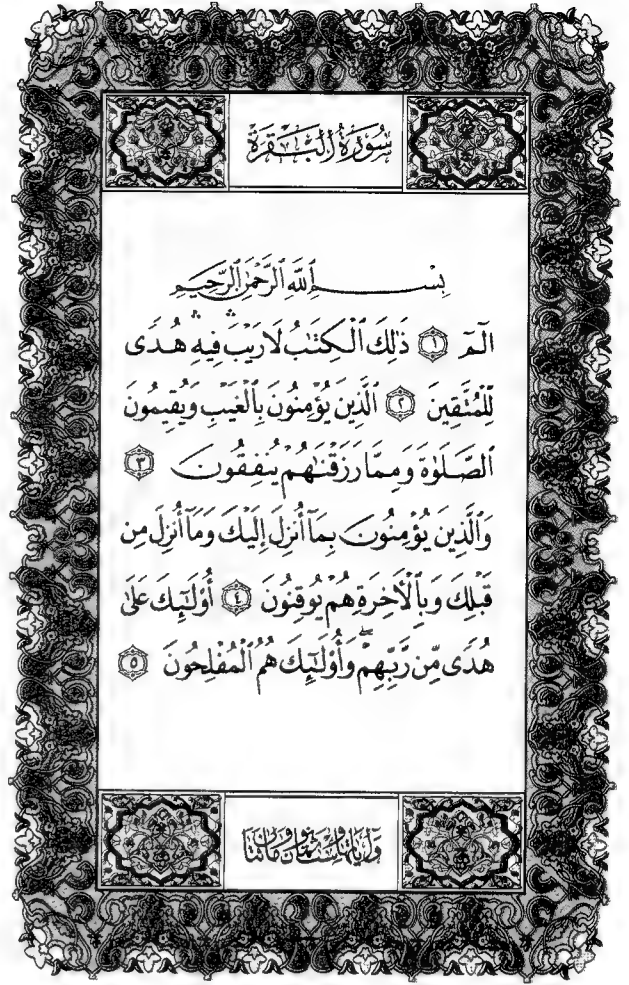 سُورَةُ ٱلْبَقَرَةِ
بِسْمِ ٱللَّهِ ٱلرَّحْمَٰنِ ٱلرَّحِيمِ
الٓمٓ ۝١ ذَٰلِكَ ٱلْكِتَٰبُ لَا رَيْبَ ۛ فِيهِ ۛ هُدًى
لِّلْمُتَّقِينَ ۝٢ ٱلَّذِينَ يُؤْمِنُونَ بِٱلْغَيْبِ وَيُقِيمُونَ
ٱلصَّلَوٰةَ وَمِمَّا رَزَقْنَٰهُمْ يُنفِقُونَ ۝٣
وَٱلَّذِينَ يُؤْمِنُونَ بِمَآ أُنزِلَ إِلَيْكَ وَمَآ أُنزِلَ مِن
قَبْلِكَ وَبِٱلْءَاخِرَةِ هُمْ يُوقِنُونَ ۝٤ أُو۟لَٰٓئِكَ عَلَىٰ
هُدًى مِّن رَّبِّهِمْ ۖ وَأُو۟لَٰٓئِكَ هُمُ ٱلْمُفْلِحُونَ ۝٥